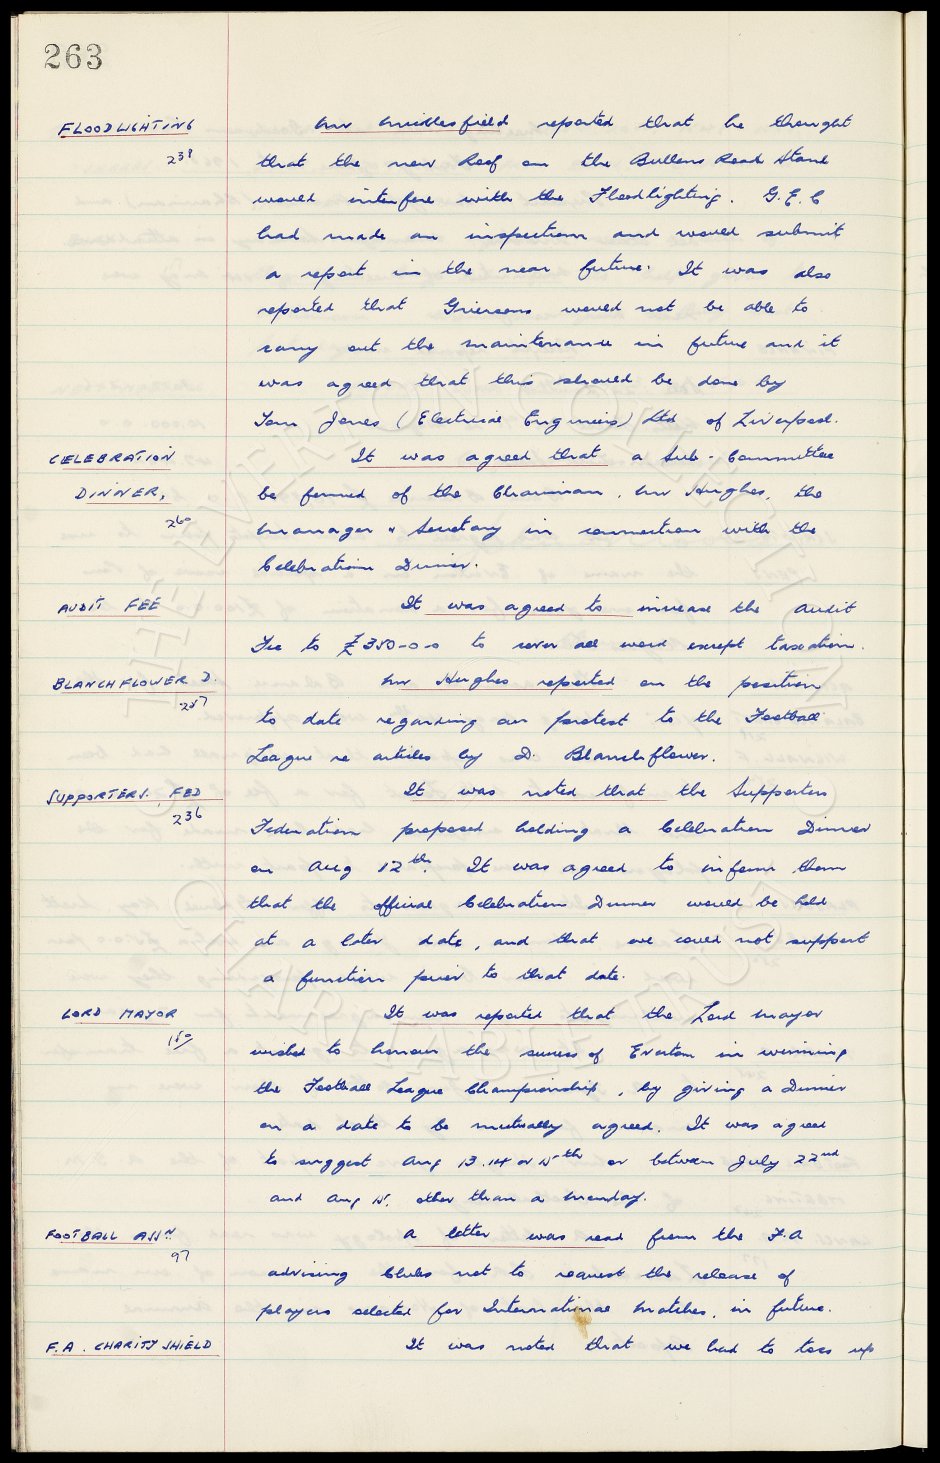 263
FLOODLIGHTING
238
Mr Micklesfield reported that he thought
that the new Roof on the Bullens Road Stand
would interfere with the Floodlighting. G.E.C
had made an inspection and would submit
a report in the near future. It was also
reported that Griersons would not be able to
carry out the maintenance in future and it
was agreed that this should be done by
Tom Jones (Electrical Engineers) Ltd of Liverpool.
CELEBRATION
DINNER,
260
It was agreed that a Sub-Committee
be formed of the Chairman, Mr Hughes, the
Manager & Secretary in connection with the
Celebration Dinner.
AUDIT FEE
It was agreed to increase the Audit
Fee to £350-0-0 to cover all work except taxation.
BLANCHFLOWER D.
257
Mr Hughes reported on the position
to date regarding our protest to the Football
League re articles by D. Blanchflower.
SUPPORTERS. FED
236
It was noted that the Supporters
Federation proposed holding a Celebration Dinner
on Aug 12th. It was agreed to inform them
that the official Celebration Dinner would be held
at a later date, and that we could not support
a function prior to that date.
LORD MAYOR
150
It was reported that the Lord Mayor
wished to honour the success of Everton in winning
the Football League Championship, by giving a Dinner
on a date to be mutually agreed. It was agreed
to suggest Aug 13.14 or 15th or between July 22nd
and Aug 15. other than a Monday.
FOOTBALL ASSN
97
A letter was read from the F.A
advising Clubs not to request the release of
players selected for International Matches, in future.
F.A. CHARITY SHIELD
It was noted that we had to toss up